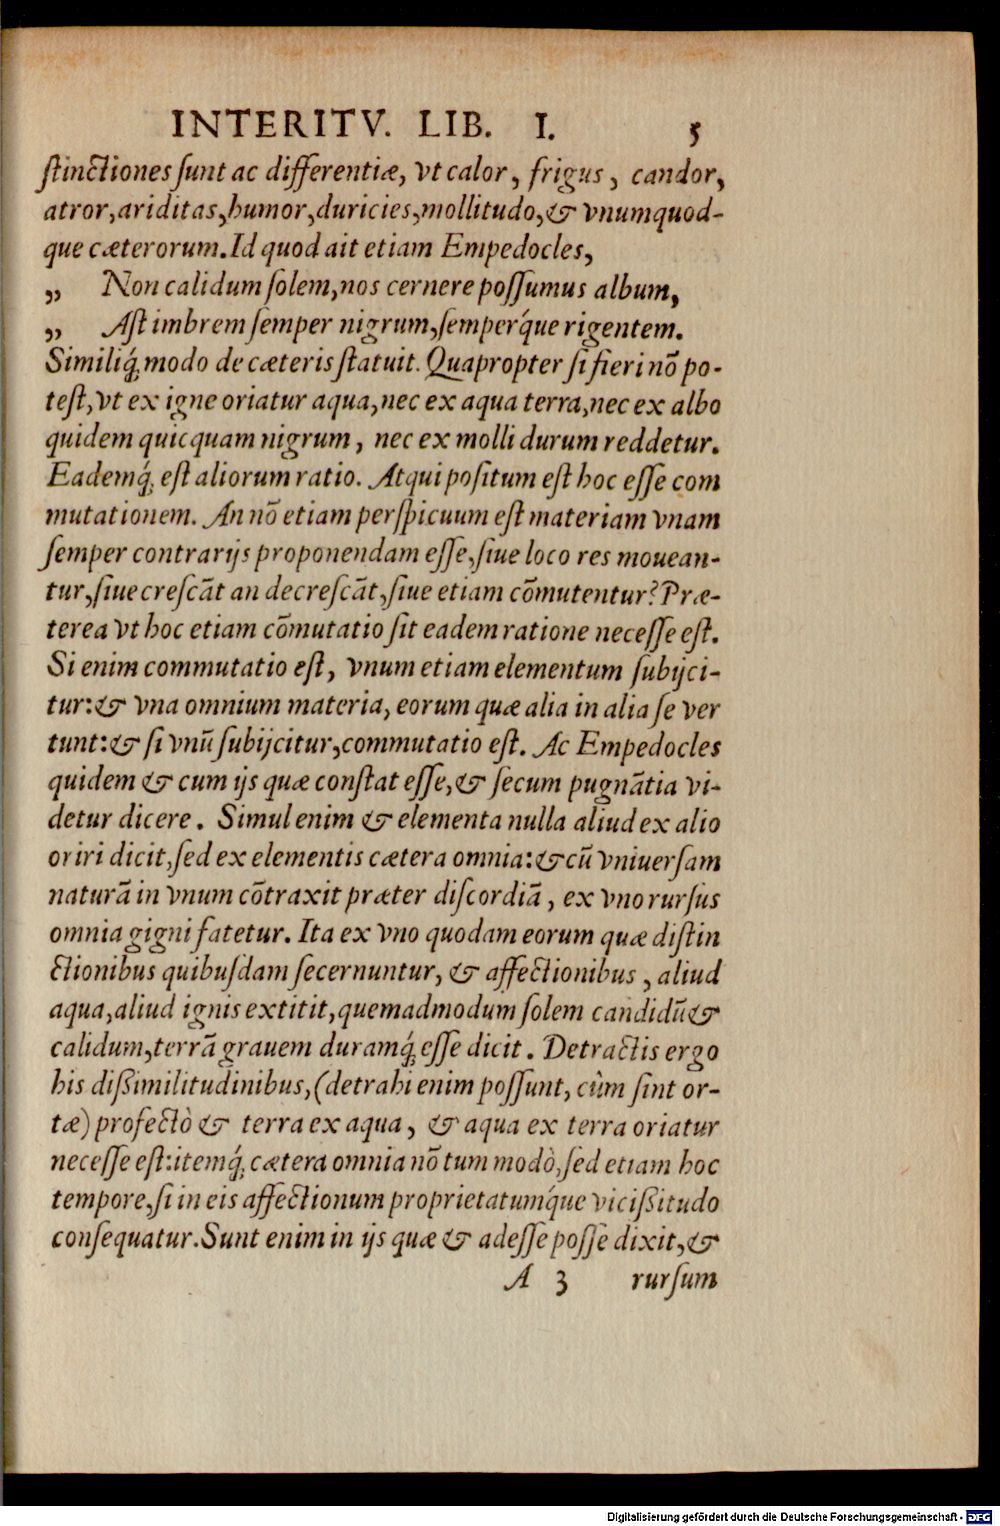 INTERITV. LIB. I. 5
ſtinctiones ſunt ac differentiæ, vt calor, frigus, candor,
atror, ariditas, humor, duricies, mollitudo, & vnumquod-
que cæterorum. Id quod ait etiam Empedocles,
„ Non calidum ſolem, nos cernere poſſumus album,
„ Aſt imbrem ſemper nigrum, ſemperq́ue rigentem.
Similiq́; modo de cæteris ſtatuit. Quapropter ſi fieri nō po-
teſt, vt ex igne oriatur aqua, nec ex aqua terra, nec ex albo
quidem quicquam nigrum, nec ex molli durum reddetur.
Eademq́; eſt aliorum ratio. Atqui poſitum eſt hoc eſſe com
mutationem. An nō etiam perſpicuum eſt materiam vnam
ſemper contrarijs proponendam eſſe, ſiue loco res mouean-
tur, ſiue creſcāt an decreſcāt, ſiue etiam cōmutentur? Præ-
terea vt hoc etiam cōmutatio ſit eadem ratione neceſſe eſt.
Si enim commutatio eſt, vnum etiam elementum ſubijci-
tur: & vna omnium materia, eorum quæ alia in alia ſe ver
tunt: & ſi vnū ſubijcitur, commutatio eſt. Ac Empedocles
quidem & cum ijs quæ conſtat eſſe, & ſecum pugnātia vi-
detur dicere. Simul enim & elementa nulla aliud ex alio
oriri dicit, ſed ex elementis cætera omnia: & cū vniuerſam
naturā in vnum cōtraxit præter diſcordiā, ex vno rurſus
omnia gigni fatetur. Ita ex vno quodam eorum quæ diſtin
ctionibus quibuſdam ſecernuntur, & affectionibus, aliud
aqua, aliud ignis extitit, quemadmodum ſolem candidū &
calidum, terrā grauem duramq́; eſſe dicit. Detractis ergo
his dißimilitudinibus, (detrahi enim poſſunt, cùm ſint or-
tæ) profectò & terra ex aqua, & aqua ex terra oriatur
neceſſe eſt: itemq́; cætera omnia nō tum modò, ſed etiam hoc
tempore, ſi in eis affectionum proprietatumq́ue vicißitudo
conſequatur. Sunt enim in ijs quæ & adeſſe poſſe dixit, &
A 3 rurſum
Digitalisierung gefördert durch die Deutsche Forschungsgemeinschaft - DFG